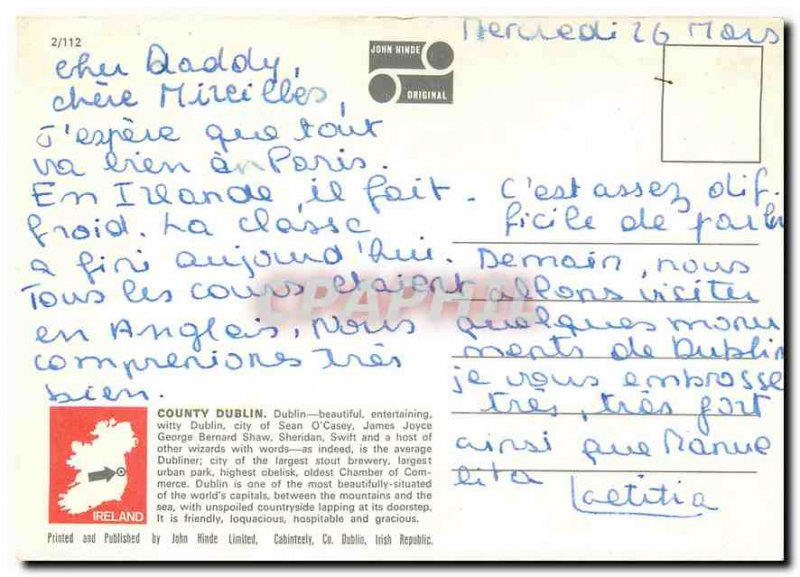 2/112
Mercredi 26 Mars
JOHN HINDE
ORIGINAL
cher Daddy,
chère Mireilles,
J'espère que tout
va bien à Paris.
En Irlande, il fait
froid. La classe
a fini aujourd'hui.
Tous les cours etaient
en Anglais, Nous
compreniones très
bien.
. C'est assez dif.
ficile de parler
. Demain, nous
allons visiter
quelques monu
ments de Dublin
je vous embrasse
très, très fort
ainsi que Manue
lita
Laetitia
CPAPHIL
IRELAND
COUNTY DUBLIN. Dublin—beautiful, entertaining,
witty Dublin, city of Sean O'Casey, James Joyce
George Bernard Shaw, Sheridan, Swift and a host of
other wizards with words—as indeed, is the average
Dubliner; city of the largest stout brewery, largest
urban park, highest obelisk, oldest Chamber of Com-
merce. Dublin is one of the most beautifully-situated
of the world's capitals, between the mountains and the
sea, with unspoiled countryside lapping at its doorstep.
It is friendly, loquacious, hospitable and gracious.
Printed and Published by John Hinde Limited, Cabinteely, Co. Dublin, Irish Republic.